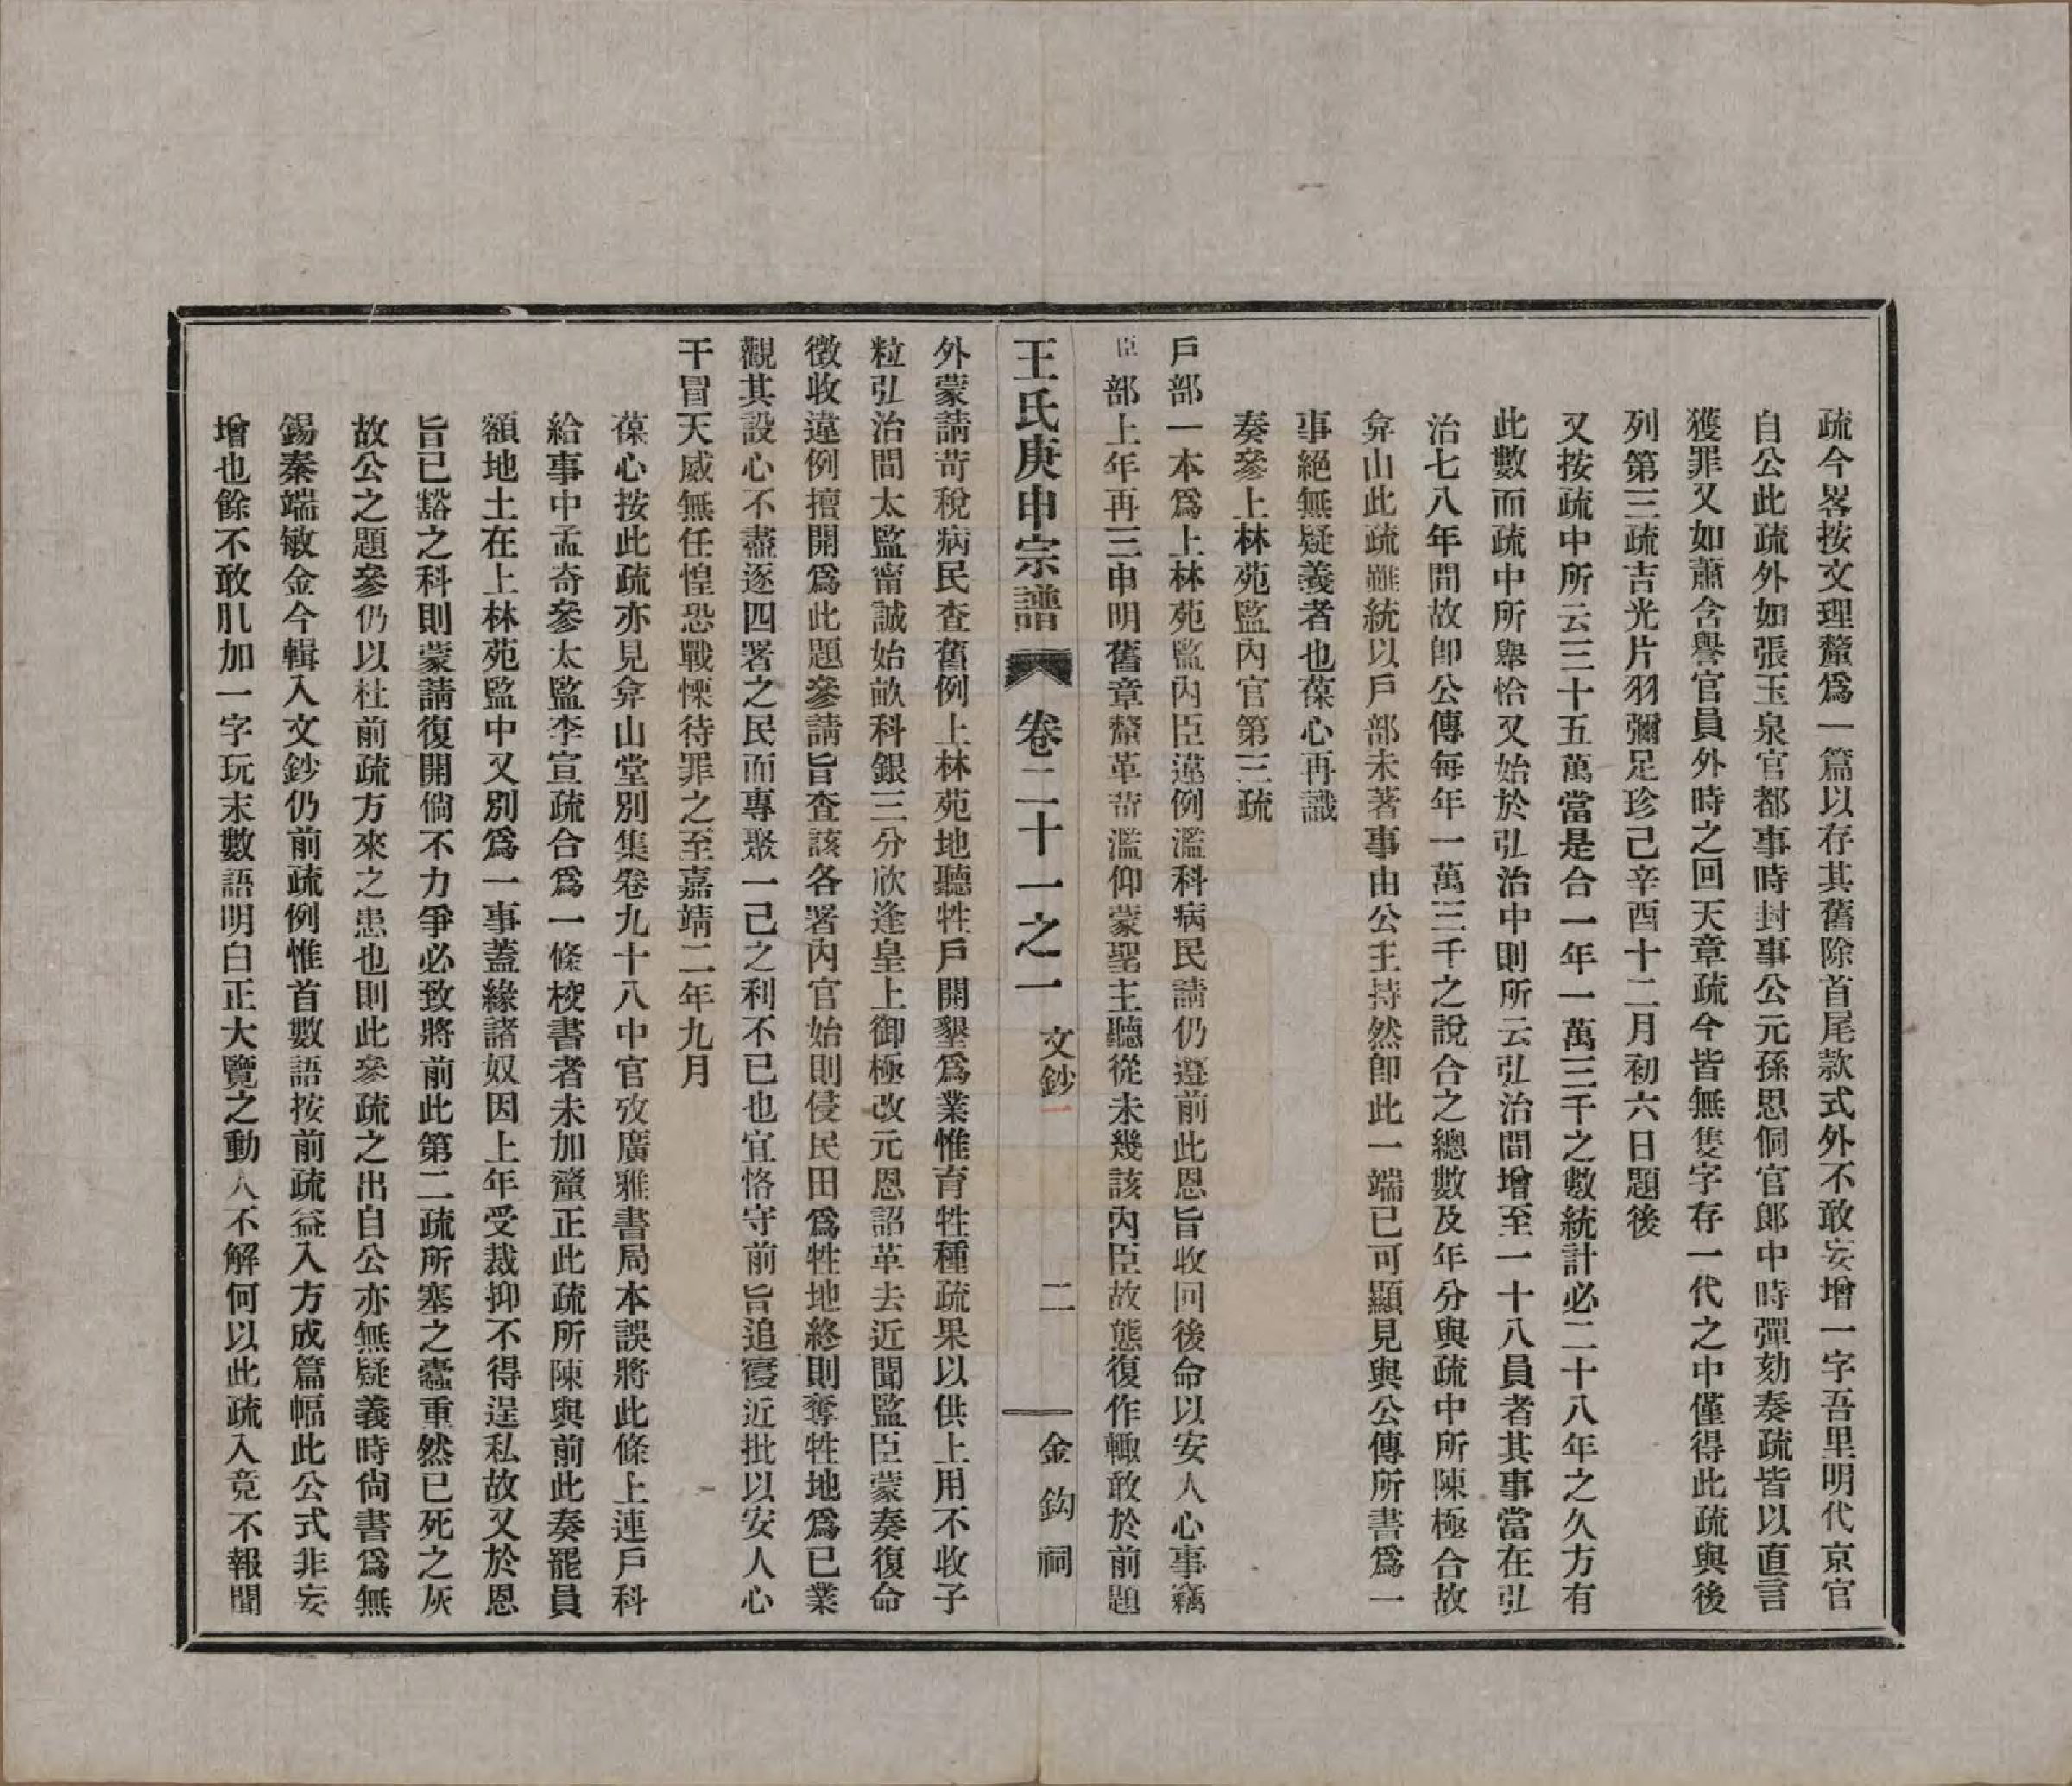 疏今畧按文理釐爲一篇以存其舊除首尾款式外不敢妄增一字吾里明代京官
自公此疏外如張玉泉官都事時封事公元孫思侗官郎中時彈劾奏疏皆以直言
獲罪又如蕭含譽官員外時之回天章疏今皆無隻字存一代之中僅得此疏與後
列第三疏吉光片羽彌足珍己辛酉十二月初六日題後
又按疏中所云三十五萬當是合一年一萬三千之數統計必二十八年之久方有
此數而疏中所舉恰又始於弘治中則所云弘治間增至一十八員者其事當在弘
治七八年間故卽公傳每年一萬三千之說合之總數及年分與疏中所陳極合故
弇山此疏雖統以戶部未著事由公主持然卽此一端已可顯見與公傳所書爲一
事絕無疑義者也葆心再識
奏參上林苑監內官第三疏
戶部一本爲上林苑監內臣違例濫科病民請仍遵前此恩旨收回後命以安人心事竊
臣部上年再三申明舊章釐革苛濫仰蒙聖主聽從未幾該內臣故態復作輙敢於前題
王氏庚申宗譜 卷二十一之一 文鈔一 二 金鈎祠
外蒙請苛稅病民查舊例上林苑地聽牲戶開墾爲業惟育牲種疏果以供上用不收子
粒弘治間太監甯誠始畝科銀三分欣逢皇上御極改元恩詔革去近聞監臣蒙奏復命
徴收違例擅開爲此題參請旨查該各署內官始則侵民田爲牲地終則奪牲地爲已業
觀其設心不盡逐四署之民而專聚一己之利不已也宜恪守前旨追寢近批以安人心
干冒天威無任惶恐戰慄待罪之至嘉靖二年九月
葆心按此疏亦見弇山堂別集卷九十八中官攷廣雅書局本誤將此條上連戶科
給事中孟奇參太監李宣疏合爲一條校書者未加釐正此疏所陳與前此奏罷員
額地土在上林苑監中又別爲一事蓋緣諸奴因上年受裁抑不得逞私故又於恩
旨已豁之科則蒙請復開倘不力爭必致將前此第二疏所塞之蠹重然已死之灰
故公之題參仍以杜前疏方來之患也則此參疏之出自公亦無疑義時尙書爲無
錫秦端敏金今輯入文鈔仍前疏例惟首數語按前疏益入方成篇幅此公式非妄
增也餘不敢肌加一字玩末數語明白正大覽之動人不解何以此疏入竟不報聞